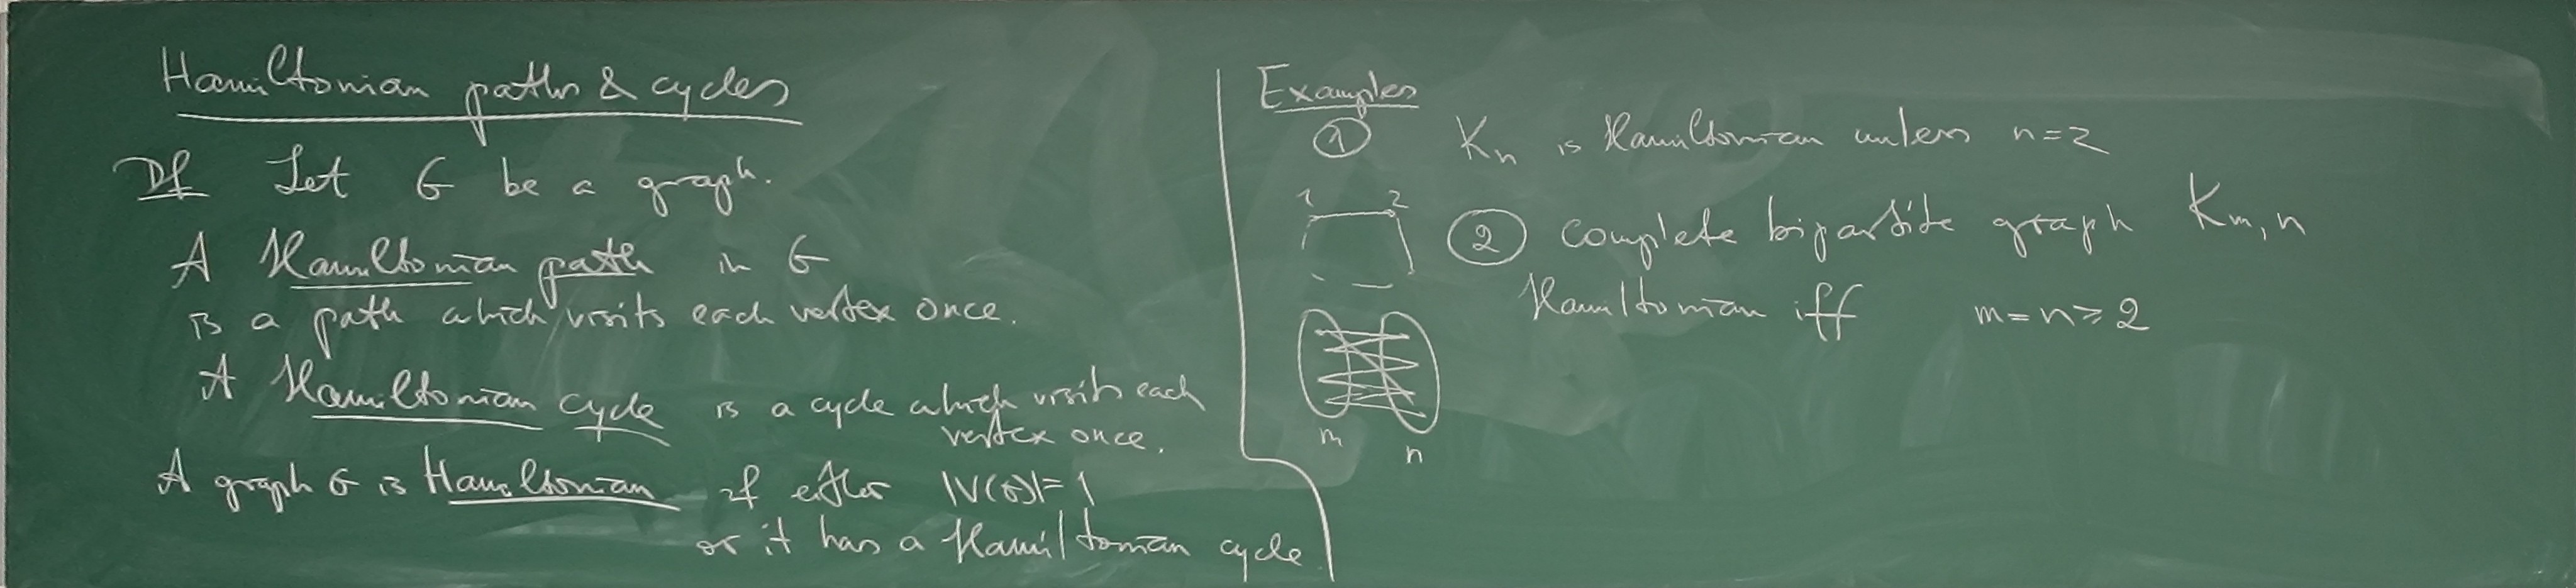 Hamiltonian paths & cycles
Df Let G be a graph.
A Hamiltonian path in G
is a path which visits each vertex once.
A Hamiltonian cycle is a cycle which visits each
vertex once.
A graph G is Hamiltonian if either |V(G)|=1
or it has a Hamiltonian cycle.
Examples
① Kn is Hamiltonian unless n=2
1 2
② complete bipartite graph Km,n
Hamiltonian iff m=n≥2
m n